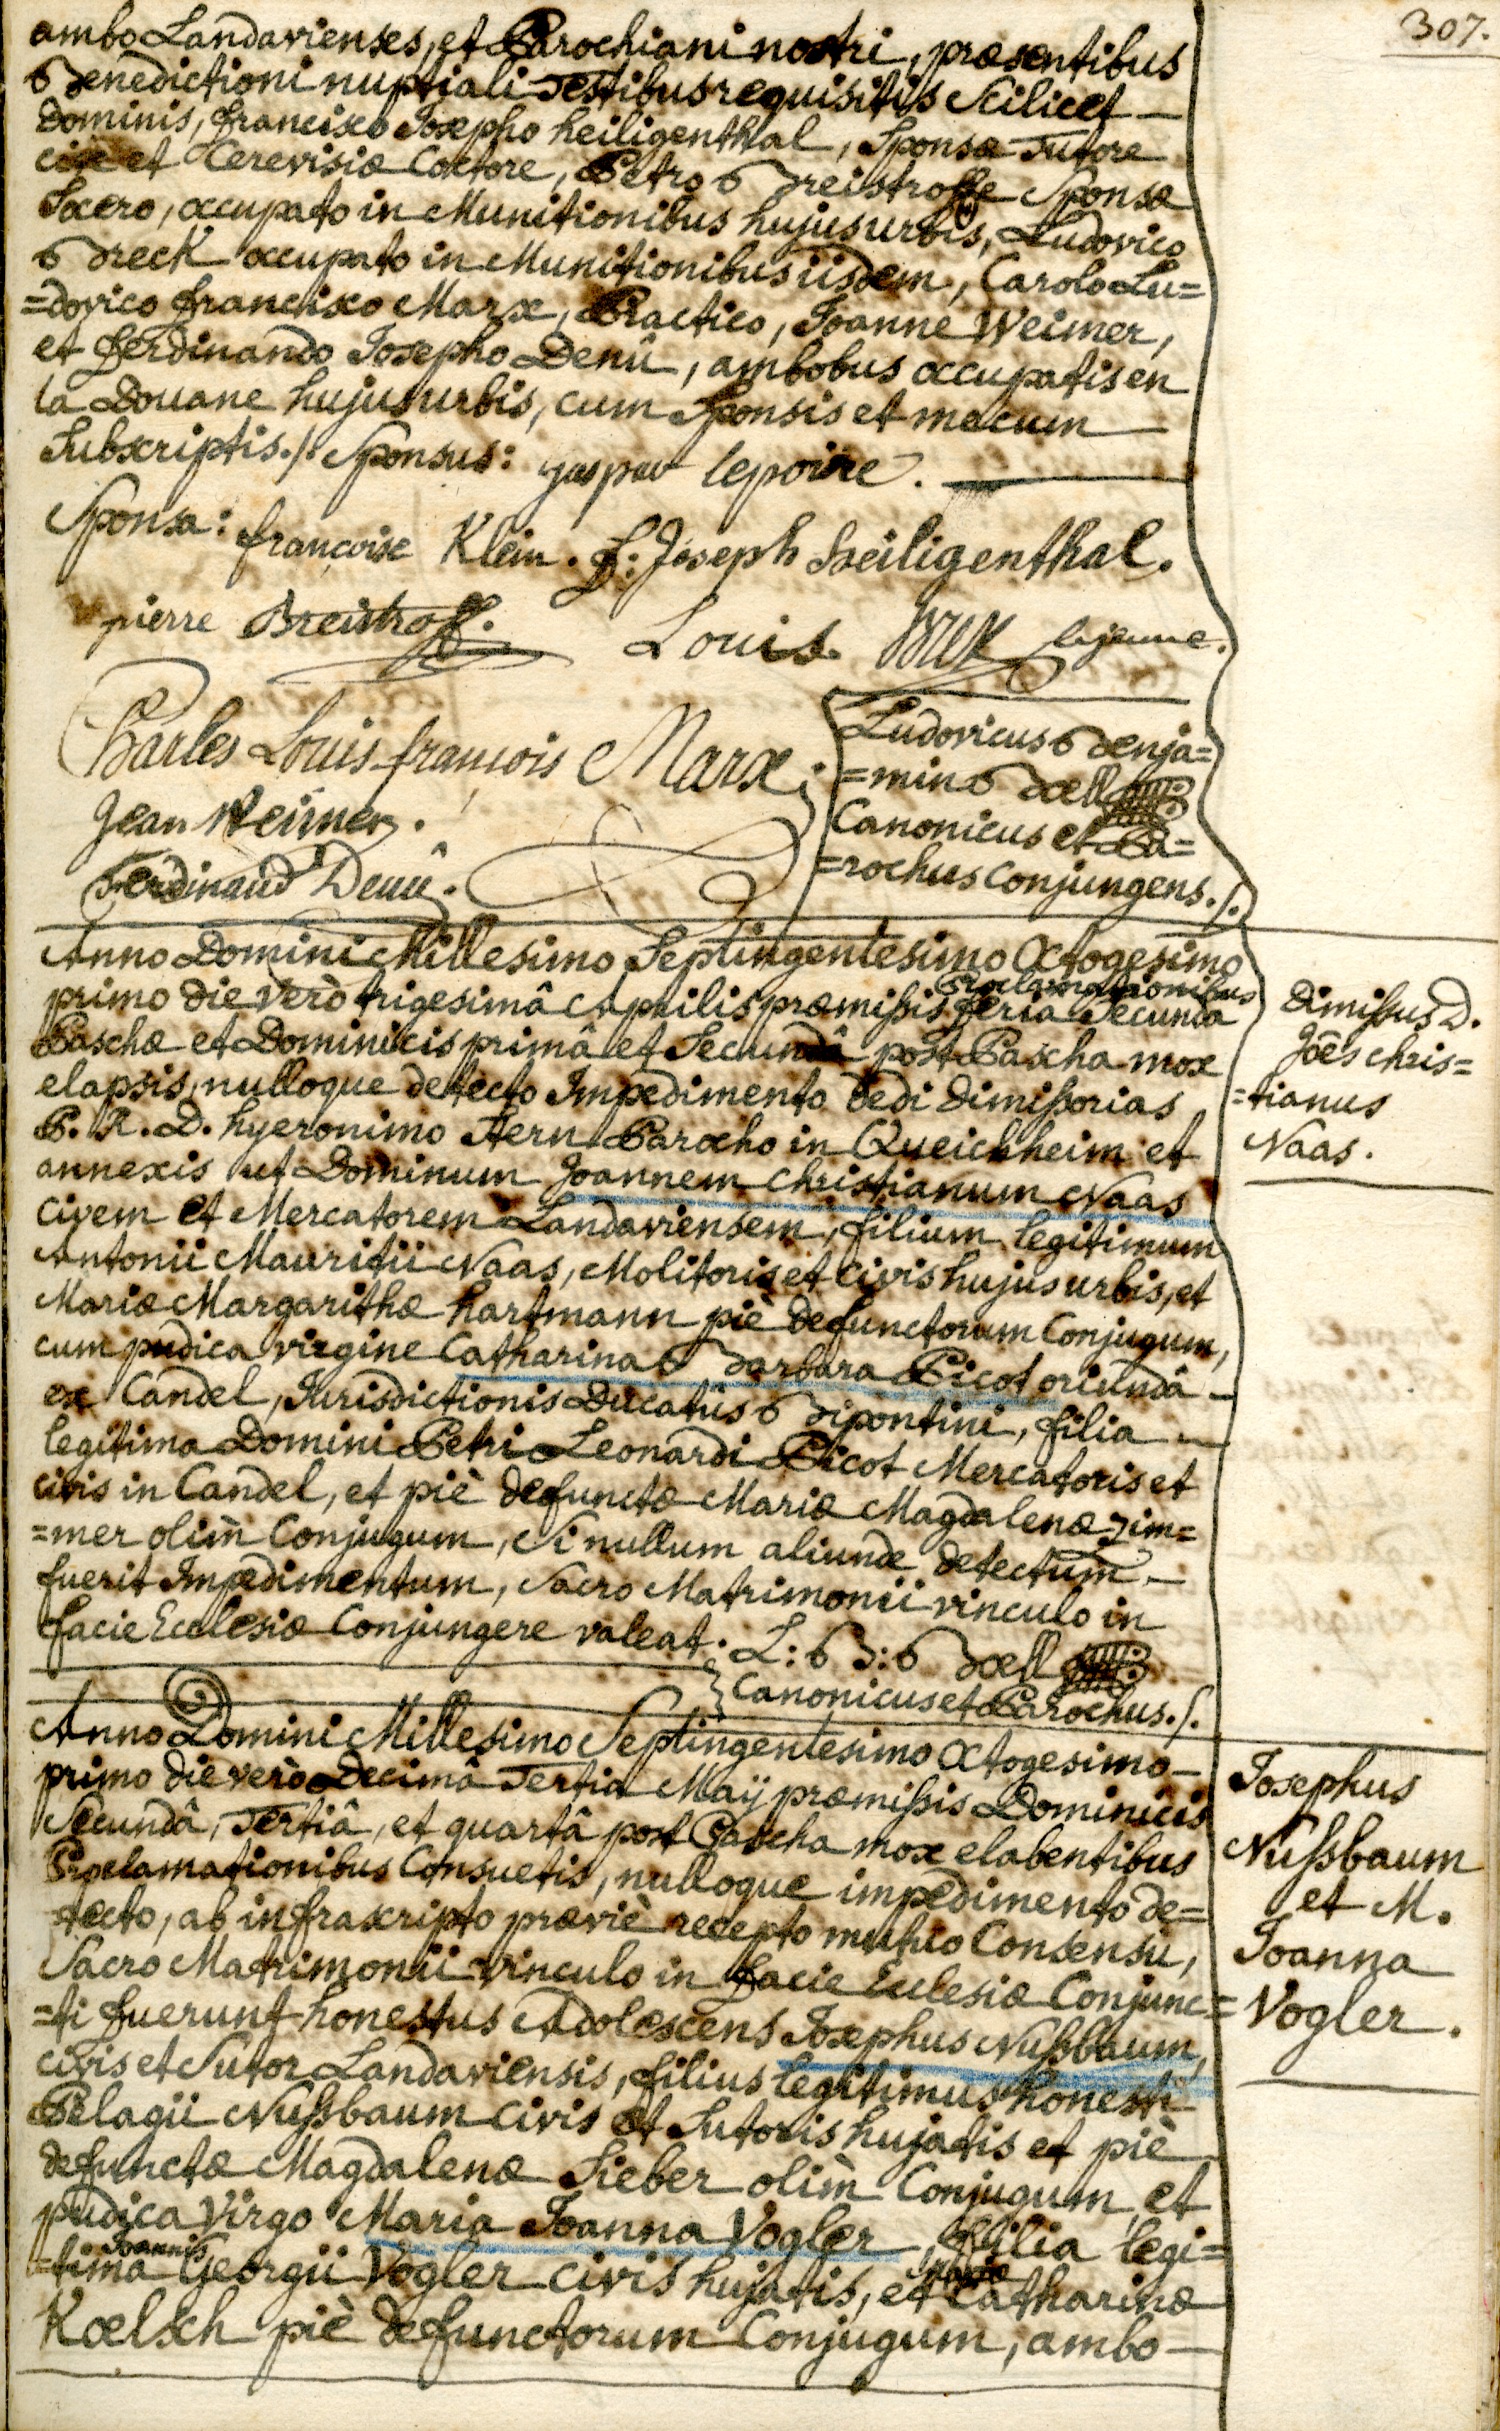 307.
ambo Landavienses, et Parochiani nostri, præsentibus
Benedictioni nuptiali Testibus requisitis Scilicet
Dominis, francisco Josepho heiligenthal, Sponsæ Tutore
cive et Cerevisiæ Coctore, Petro Breistroffe Sponsæ
Socero, occupato in Munitionibus hujus urbis, Ludovico
Breck occupato in Munitionibus iisdem, Carolo Lu=
=dovico francisco Marx, Practico, Joanne Weimer,
et ferdinando Josepho Denû, ambobus occupatis en
la Douane hujus urbis, cum Sponsis et mecum
Subscriptis./. Sponsus: gaspar lepoire.
Sponsa: françoise Klein. f: Joseph heiligenthal.
pierre Breistroff. Louis Breck lejeune.
Charles Louis françois Marx;
Jean Weimer.
Ferdinand Denû.
Ludovicus Benja=
=min Boell
Canonicus et Pa=
=rochus conjungens./.
Anno Domini Millesimo Septingentesimo Octogesimo
primo die verò trigesimâ Aprilis præmißis Proclamationibus feria Secunda
Paschæ et Dominicis primâ et Secundâ post Pascha mox
elapsis, nulloque detecto Impedimento dedi dimißorias
P. R. D. hyeronimo Aern Parocho in Queichheim et
annexis ut Dominum Joannem christianum Naas
Civem et Mercatorem Landaviensem, filium legitimum
Antonii Mauritii Naas, Molitoris et civis hujus urbis, et
Mariæ Margarithæ hartmann piè defunctorum Conjugum,
cum pudica virgine Catharina Barbara Picot oriundâ
ex Candel, Jurisdictionis Ducatûs Bipontini, filia
legitima Domini Petri Leonardi Picot Mercatoris et
civis in Candel, et piè defunctæ Mariæ Magdalenæ zim=
=mer olim Conjugum, Si nullum aliunde detectum
fuerit Impedimentum, Sacro Matrimonii vinculo in
facie Ecclesiæ Conjungere valeat. L: B: Boell
Canonicus et Parochus./.
Dimißus D.
Joês chris=
=tianus
Naas.
Anno Domini Millesimo Septingentesimo Octogesimo
primo die verò Decimâ Tertia Maÿ præmißis Dominicis
Secundâ, Tertiâ, et quartâ post Pascha mox elabentibus
Proclamationibus Consuetis, nulloque impedimento de=
=tecto, ab infrascripto præviè recepto mutuo Consensu,
Sacro Matrimonii vinculo in facie Ecclesiæ Conjunc=
=ti fuerunt honestus Adolescens Josephus Nußbaum,
civis et Sutor Landaviensis, filius legitimus honesti
Pelagii Nußbaum civis et Sutoris hujatis et piè
defunctæ Magdalenæ Sieber olim Conjugum, et
pudica Virgo Maria Joanna Vogler, filia legi=
=tima Joannis Georgii Vogler civis hujatis, et Mariæ Catharinæ
Koelsch piè defunctorum Conjugum, ambo
Josephus
Nußbaum
et M.
Joanna
Vogler.